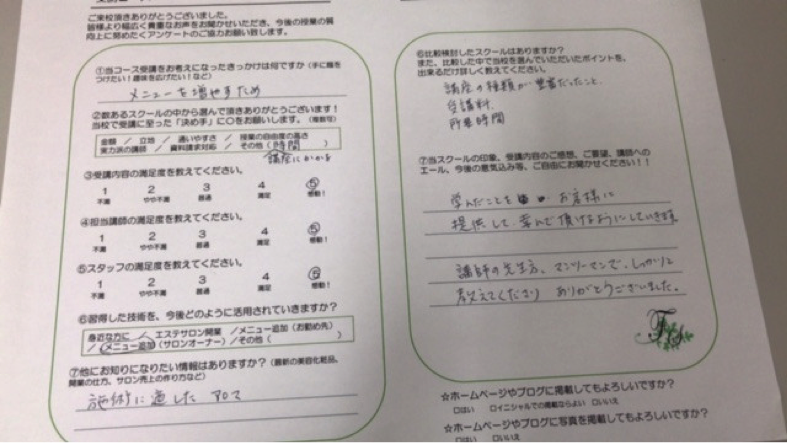 ご来校頂きありがとうございました。
皆様より幅広く貴重なお声をお聞かせいただき、今後の授業の質
向上に努めたくアンケートのご協力お願い致します。
①当コース受講をお考えになったきっかけは何ですか（手に職を
つけたい！趣味を広げたい！など）
メニューを増やすため
②数あるスクールの中から選んで頂きありがとうございます！
当校で受講に至った「決め手」に〇をお願いします。（複数可）
金額 ／ 立地 ／ 通いやすさ ／ 授業の自由度の高さ
実力派の講師 ／ 資料請求対応 ／ その他（時間 ）
講座にかかる
③受講内容の満足度を教えてください。
1 2 3 4 5
不満 やや不満 普通 満足 感動！
④担当講師の満足度を教えてください。
1 2 3 4 5
不満 やや不満 普通 満足 感動！
⑤スタッフの満足度を教えてください。
1 2 3 4 5
不満 やや不満 普通 満足 感動！
⑥習得した技術を、今後どのように活用されていきますか？
身近な方に ／ エステサロン開業 ／メニュー追加（お勤め先）
／ メニュー追加（サロンオーナー）／その他（ ）
⑦他にお知りになりたい情報はありますか？（最新の美容化粧品、
開業の仕方、サロン売上の作り方など）
施術に適した アロマ
⑥比較検討したスクールはありますか？
また、比較した中で当校を選んでいただいたポイントを、
出来るだけ詳しく教えてください。
講座の種類が豊富だったこと、
受講料、
所要時間
⑦当スクールの印象、受講内容のご感想、ご要望、講師への
エール、今後の意気込み等、ご自由にお聞かせください！！
学んだことを お客様に
提供して、喜んで頂けるようにしていきます
講師の先生方、マンツーマンで、しっかりと
教えてくださり ありがとうございました。
☆ホームページやブログに掲載してもよろしいですか？
□はい □イニシャルでの掲載ならよい □いいえ
☆ホームページやブログに写真を掲載してもよろしいですか？
□はい □いいえ